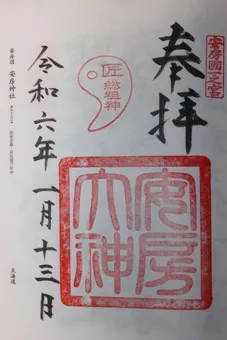 安房國一之宮
奉拝
匠
総祖神
安房大神
令和六年一月十三日
安房国 安房神社